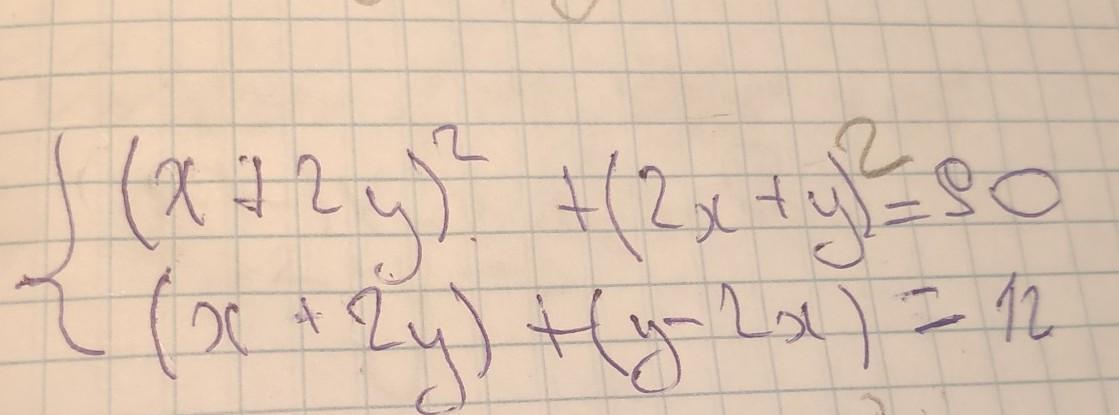 (x+2y)² +(2x+y)²=90
(x+2y)+(y-2x)=12